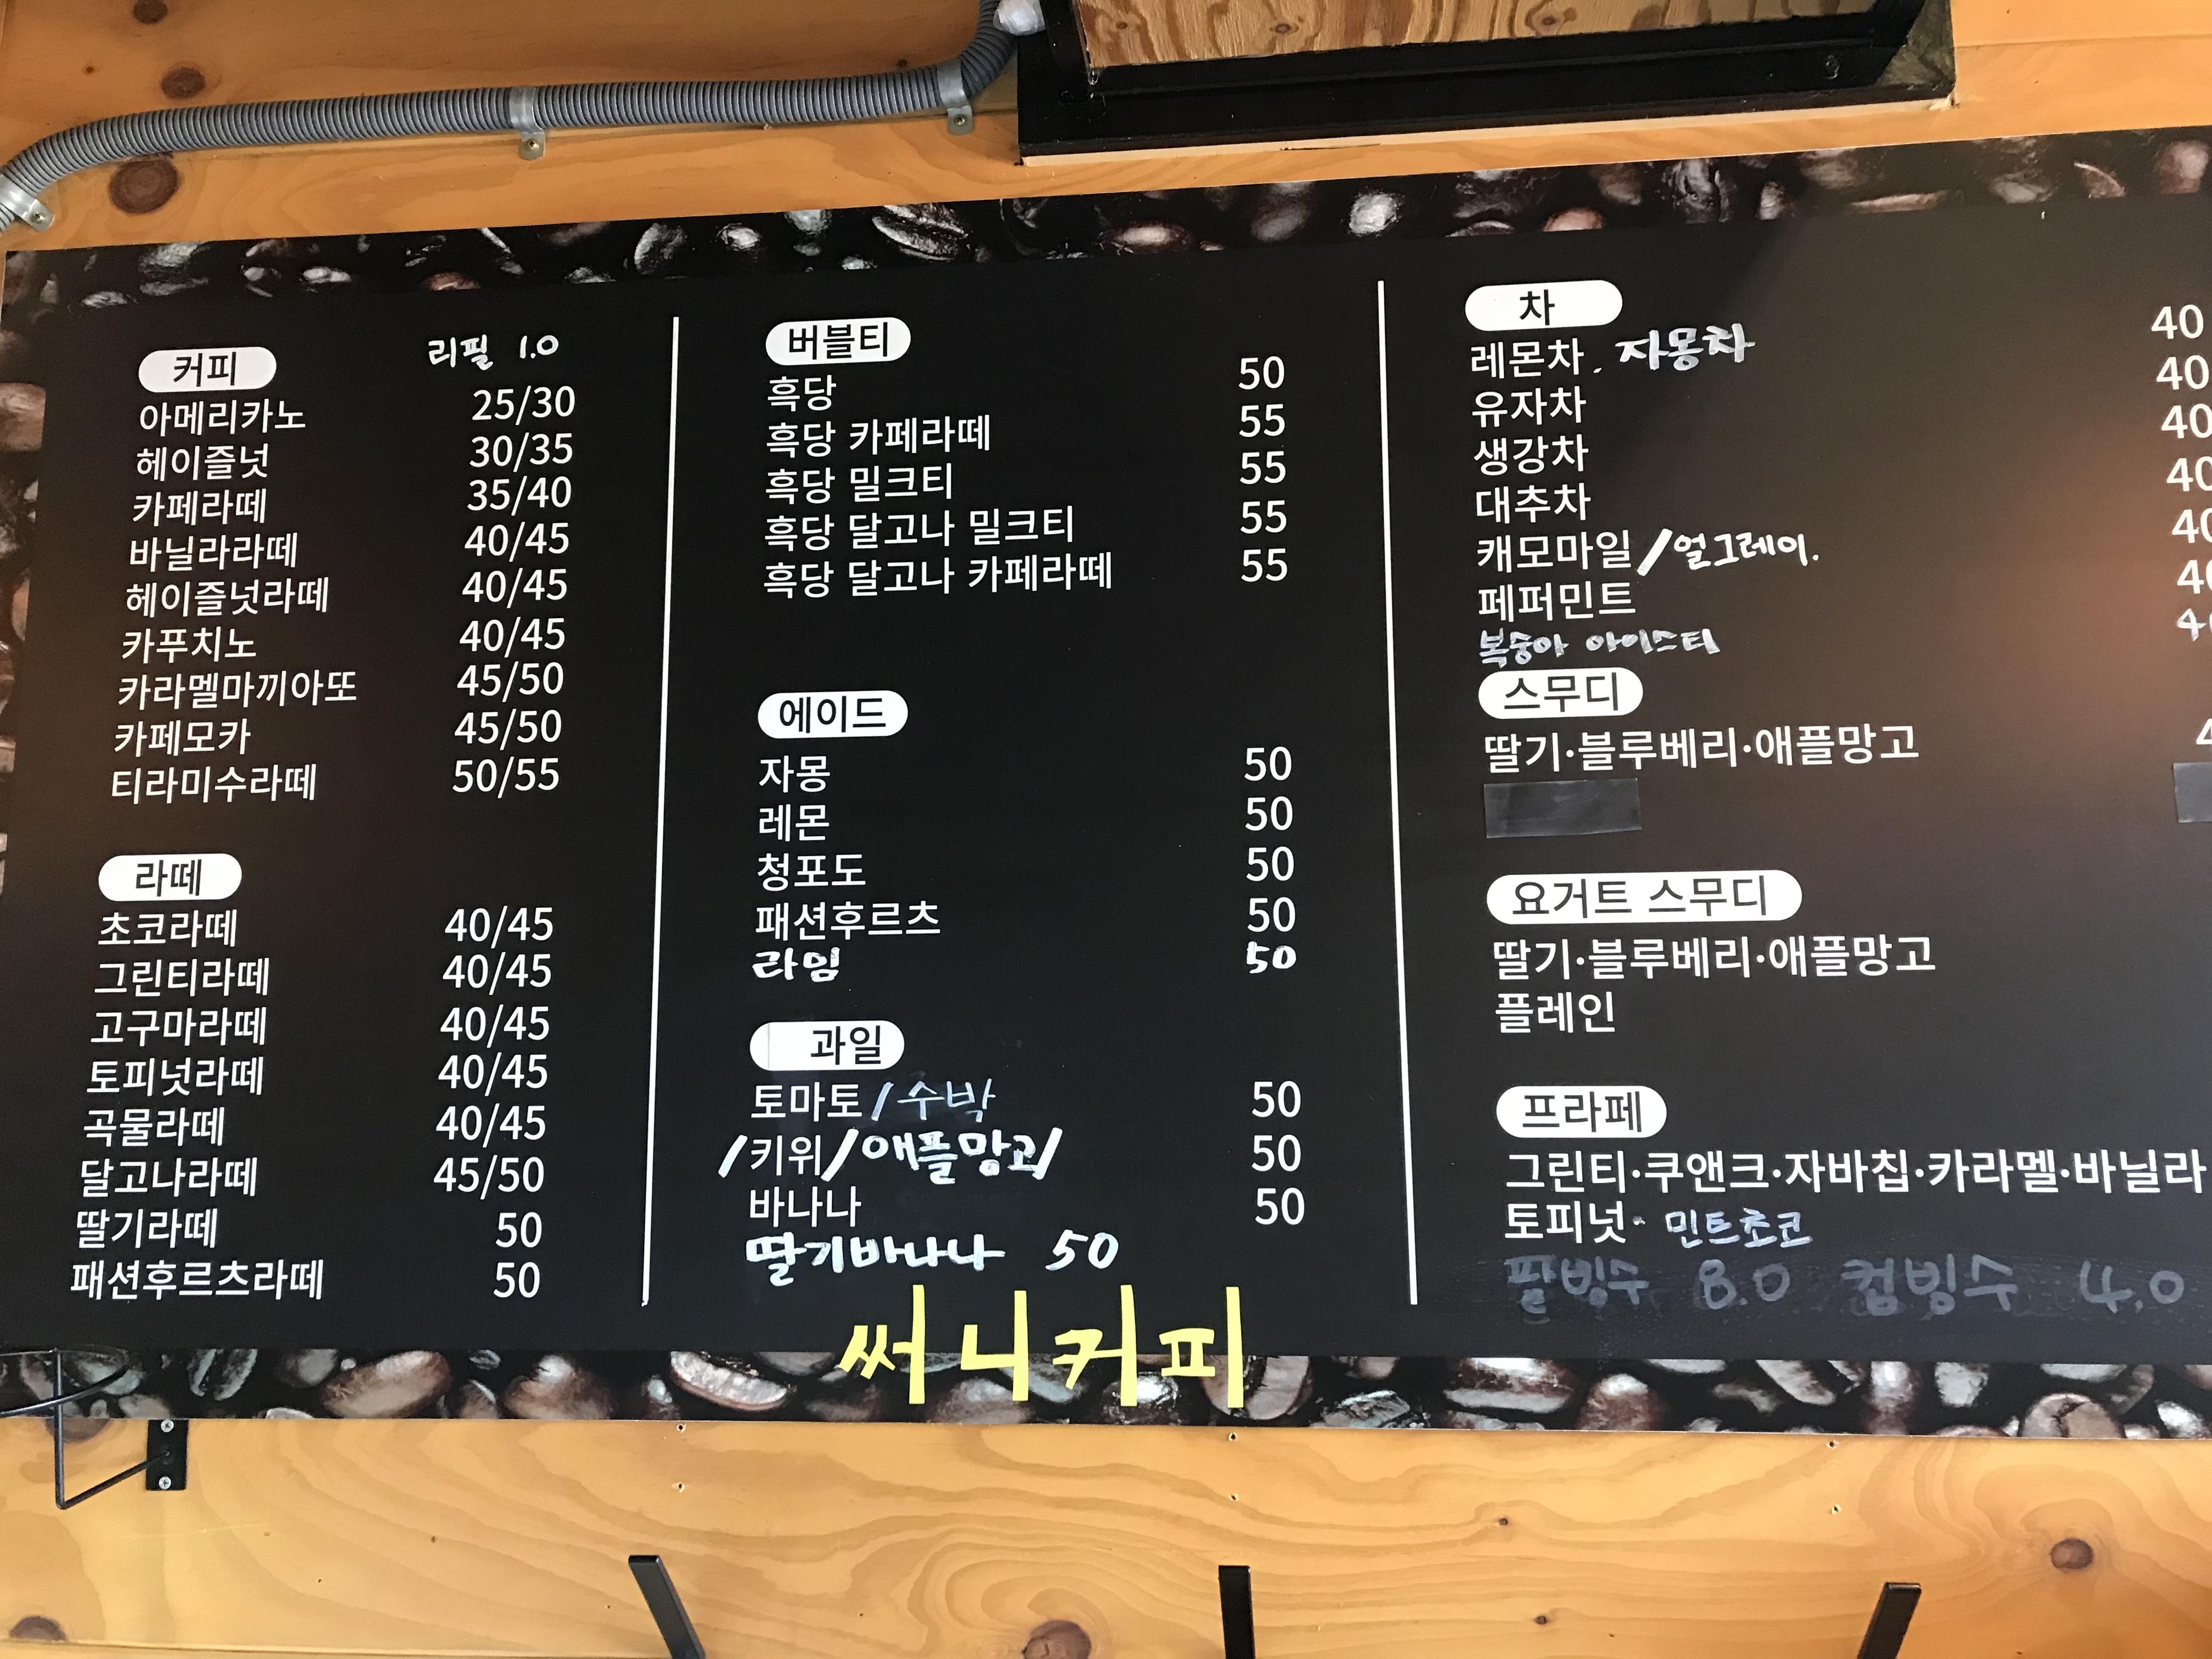 커피 리필 1.0
아메리카노 25/30
헤이즐넛 30/35
카페라떼 35/40
바닐라라떼 40/45
헤이즐넛라떼 40/45
카푸치노 40/45
카라멜마끼아또 45/50
카페모카 45/50
티라미수라떼 50/55
라떼
초코라떼 40/45
그린티라떼 40/45
고구마라떼 40/45
토피넛라떼 40/45
곡물라떼 40/45
달고나라떼 45/50
딸기라떼 50
패션후르츠라떼 50
버블티
흑당 50
흑당 카페라떼 55
흑당 밀크티 55
흑당 달고나 밀크티 55
흑당 달고나 카페라떼 55
에이드
자몽 50
레몬 50
청포도 50
패션후르츠 50
라임 50
과일
토마토/수박 50
/키위/애플망고/ 50
바나나 50
딸기바나나 50
차
레몬차. 자몽차 40
유자차 40
생강차 40
대추차 40
캐모마일/얼그레이. 40
페퍼민트 40
복숭아 아이스티 40
스무디
딸기·블루베리·애플망고 4
요거트 스무디
딸기·블루베리·애플망고
플레인
프라페
그린티·쿠앤크·자바칩·카라멜·바닐라
토피넛· 민트초코
팥빙수 8.0 컵빙수 4.0
써니커피